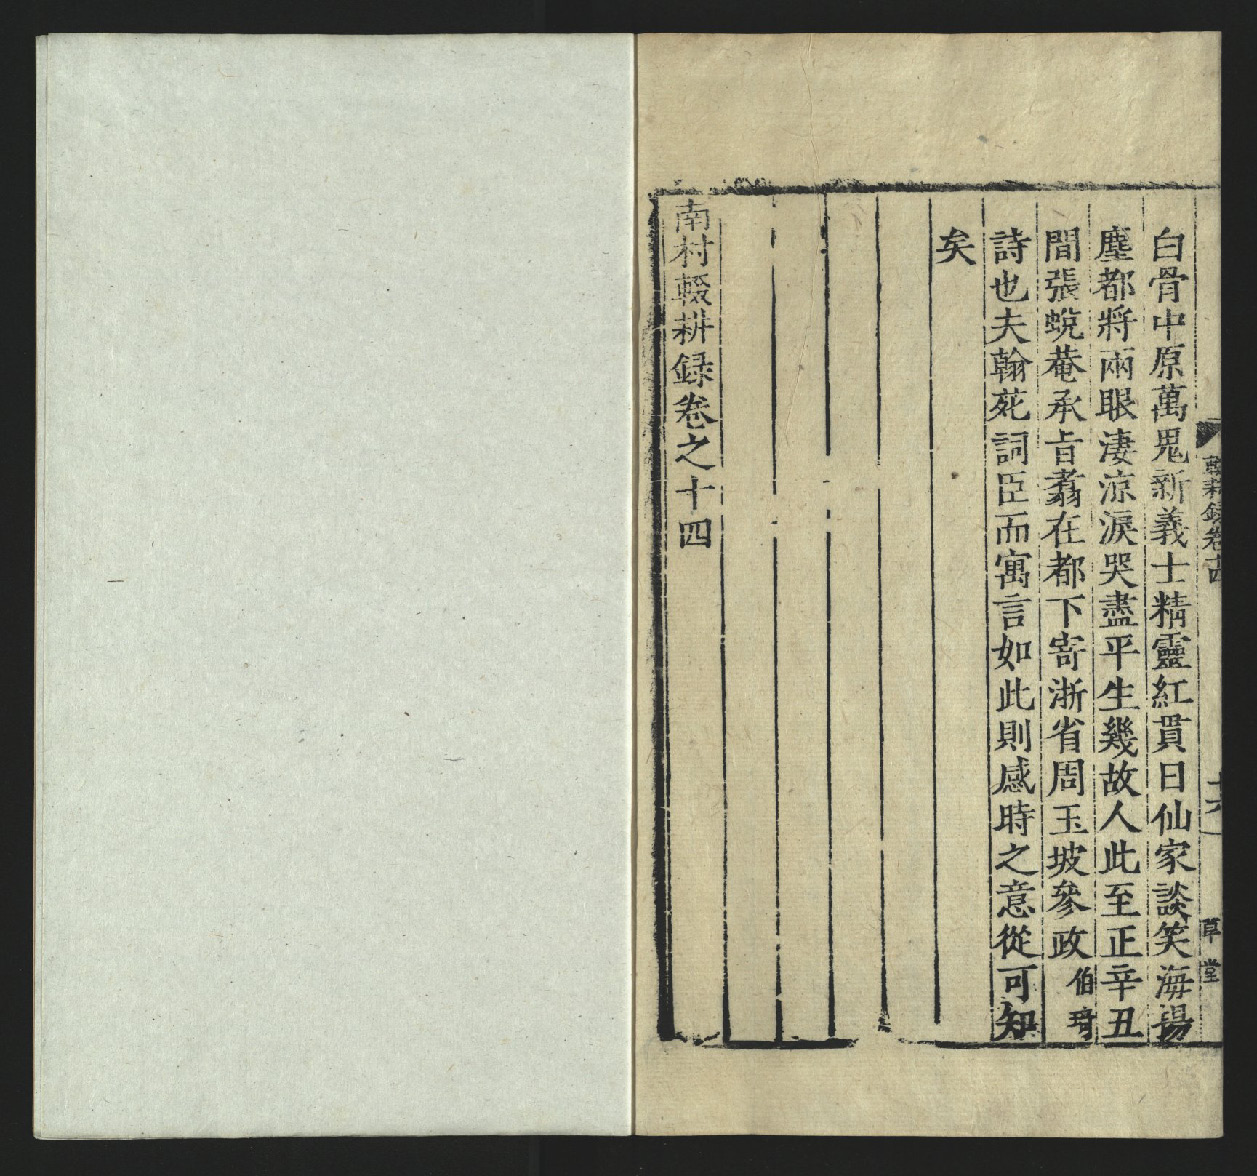 輟耕録卷十四
十六
草堂
白骨中原萬鬼新義士精靈紅貫日仙家談笑海揚
塵都將兩眼淒涼淚哭盡平生幾故人此至正辛丑
間張蛻菴承旨翥在都下寄浙省周玉坡參政伯琦
詩也夫翰苑詞臣而寓言如此則感時之意從可知
矣
南村輟耕録卷之十四